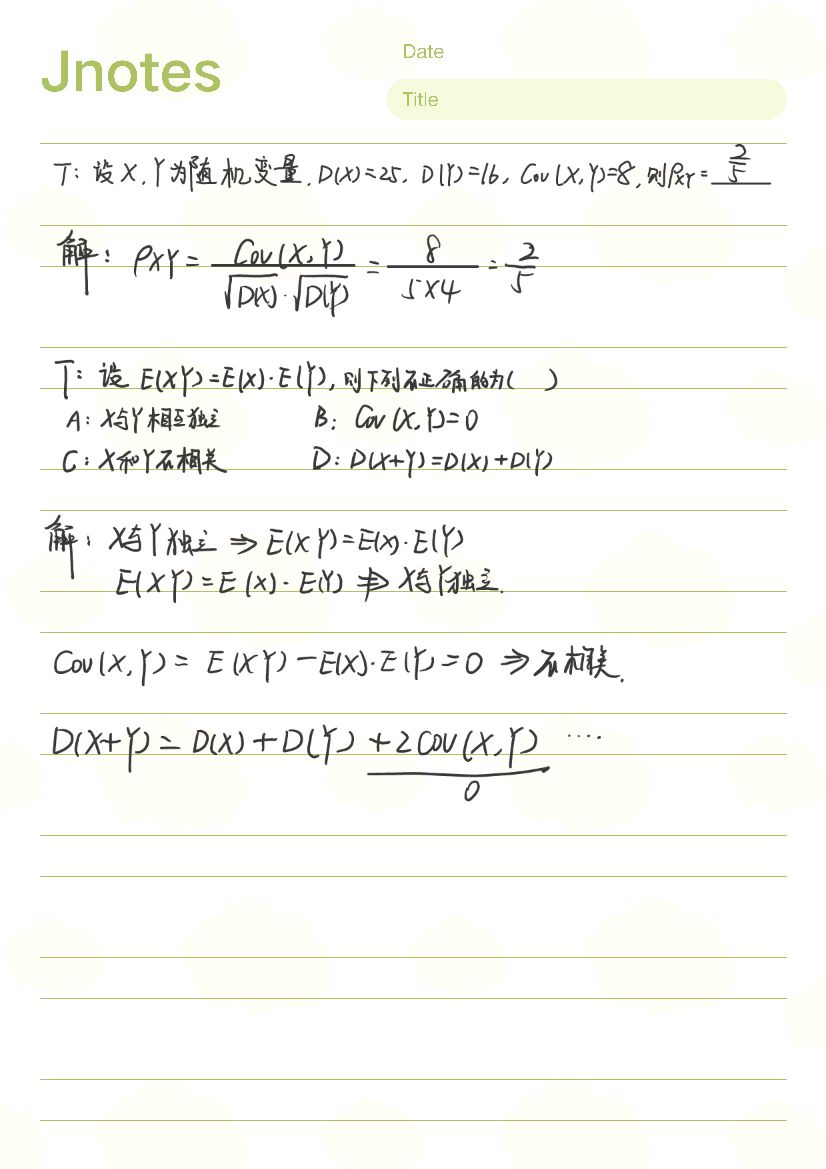 Jnotes
Date
Title
T: 设X, Y为随机变量, D(X)=25, D(Y)=16, Cov(X,Y)=8, 则ρXY= 2/5
解: ρXY = Cov(X,Y) / √D(X)·√D(Y) = 8 / 5×4 = 2/5
T: 设 E(XY)=E(X)·E(Y), 则下列不正确的为( )
A: X与Y相互独立 B: Cov(X,Y)=0
C: X和Y不相关 D: D(X+Y)=D(X)+D(Y)
解: X与Y独立 ⇒ E(XY)=E(X)·E(Y)
E(XY)=E(X)·E(Y) ⇏ X与Y独立.
Cov(X,Y) = E(XY)-E(X)·E(Y)=0 ⇒ 不相关.
D(X+Y) = D(X)+D(Y)+2COV(X,Y) ····
0